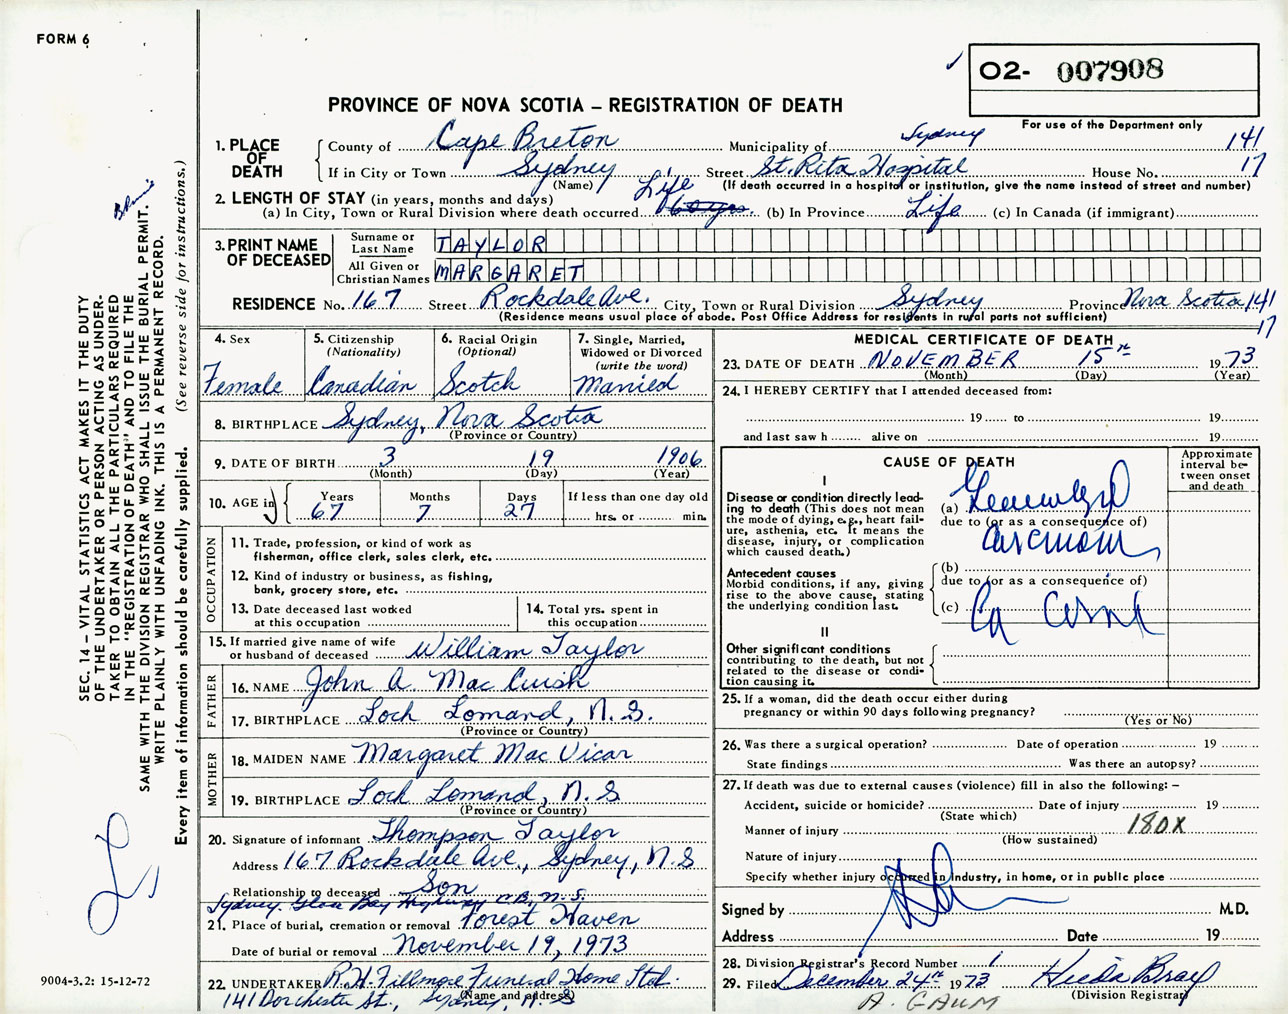 FORM 6
O2- 007908
PROVINCE OF NOVA SCOTIA – REGISTRATION OF DEATH
For use of the Department only
1. PLACE OF DEATH
County of Cape Breton Municipality of Sydney 141
If in City or Town Sydney Street St. Rita Hospital House No. 17
(Name) (If death occurred in a hospital or institution, give the name instead of street and number)
2. LENGTH OF STAY (in years, months and days) Life
(a) In City, Town or Rural Division where death occurred 60 yrs. (b) In Province Life (c) In Canada (if immigrant)
3. PRINT NAME OF DECEASED
Surname or Last Name TAYLOR
All Given or Christian Names MARGARET
RESIDENCE No. 167 Street Rockdale Ave. City, Town or Rural Division Sydney Province Nova Scotia 141
(Residence means usual place of abode. Post Office Address for residents in rural parts not sufficient) 17
4. Sex Female
5. Citizenship (Nationality) Canadian
6. Racial Origin (Optional) Scotch
7. Single, Married, Widowed or Divorced (write the word) Married
8. BIRTHPLACE Sydney, Nova Scotia
(Province or Country)
9. DATE OF BIRTH 3 19 1906
(Month) (Day) (Year)
10. AGE in Years Months Days If less than one day old
67 7 27 hrs. or min.
OCCUPATION
11. Trade, profession, or kind of work as fisherman, office clerk, sales clerk, etc.
12. Kind of industry or business, as fishing, bank, grocery store, etc.
13. Date deceased last worked at this occupation
14. Total yrs. spent in this occupation
15. If married give name of wife or husband of deceased William Taylor
FATHER
16. NAME John A. Mac Cuish
17. BIRTHPLACE Loch Lomand, N.S.
(Province or Country)
MOTHER
18. MAIDEN NAME Margaret Mac Vicar
19. BIRTHPLACE Loch Lomand, N.S
(Province or Country)
20. Signature of informant Thompson Taylor
Address 167 Rockdale Ave., Sydney, N.S
Relationship to deceased Son
Sydney Glace Bay Highway C.B., N.S.
21. Place of burial, cremation or removal Forest Haven
Date of burial or removal November 19, 1973
22. UNDERTAKER R.H. Fillmore Funeral Home Ltd.
141 Dorchester St., Sydney, N.S
(Name and address)
MEDICAL CERTIFICATE OF DEATH
23. DATE OF DEATH NOVEMBER 15th 1973
(Month) (Day) (Year)
24. I HEREBY CERTIFY that I attended deceased from:
19 to 19
and last saw h alive on 19
CAUSE OF DEATH
Approximate interval between onset and death
I
Disease or condition directly leading to death (This does not mean the mode of dying, e.g., heart failure, asthenia, etc. It means the disease, injury, or complication which caused death.)
(a)
due to (or as a consequence of)
Antecedent causes
Morbid conditions, if any, giving rise to the above cause, stating the underlying condition last.
(b)
due to (or as a consequence of)
(c) Ca
II
Other significant conditions contributing to the death, but not related to the disease or condition causing it.
25. If a woman, did the death occur either during pregnancy or within 90 days following pregnancy?
(Yes or No)
26. Was there a surgical operation? Date of operation 19
State findings Was there an autopsy?
27. If death was due to external causes (violence) fill in also the following: –
Accident, suicide or homicide? Date of injury 19
(State which)
Manner of injury 180X
(How sustained)
Nature of injury
Specify whether injury occurred in industry, in home, or in public place
Signed by M.D.
Address Date 19
28. Division Registrar's Record Number 1
29. Filed December 24th 1973 Hilda Bray
(Division Registrar)
A. GAUM
SEC. 14 – VITAL STATISTICS ACT MAKES IT THE DUTY
OF THE UNDERTAKER OR PERSON ACTING AS UNDER-
TAKER TO OBTAIN ALL THE PARTICULARS REQUIRED
IN THE "REGISTRATION OF DEATH" AND TO FILE THE
SAME WITH THE DIVISION REGISTRAR WHO SHALL ISSUE THE BURIAL PERMIT.
WRITE PLAINLY WITH UNFADING INK. THIS IS A PERMANENT RECORD.
Every item of information should be carefully supplied. (See reverse side for instructions.)
9004-3.2: 15-12-72